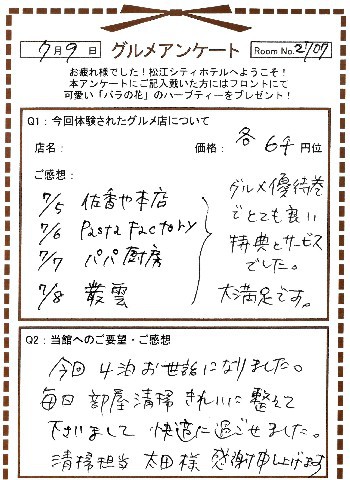 7月9日 グルメアンケート Room No. 2707
お疲れ様でした！松江シティホテルへようこそ！
本アンケートにご記入戴いた方にはフロントにて
可愛い「バラの花」のハーブティーをプレゼント！
Q1：今回体験されたグルメ店について
店名： 価格： 各 6千 円位
ご感想：
7/5 佐香や本店
7/6 Pasta Factory
7/7 パパ厨房
7/8 叢雲
グルメ優待券
でとても良い
特典とサービス
でした。
大満足です。
Q2：当館へのご要望・ご感想
今回4泊お世話になりました。
毎日部屋清掃きれいに整えて
下さいまして快適に過ごせました。
清掃担当 太田様 感謝申し上げます